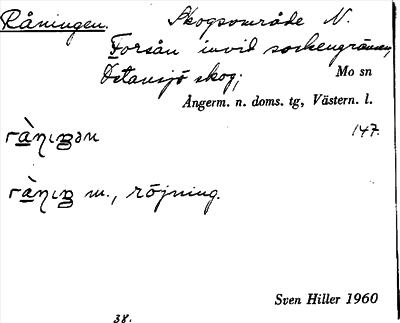 Råningen. Skogsområde N.
Forsån invid sockengränsen,
Östansjö skog; Mo sn
Ångerm. n. doms. tg, Västern. l.
147.
m., röjning.
Sven Hiller 1960
38.